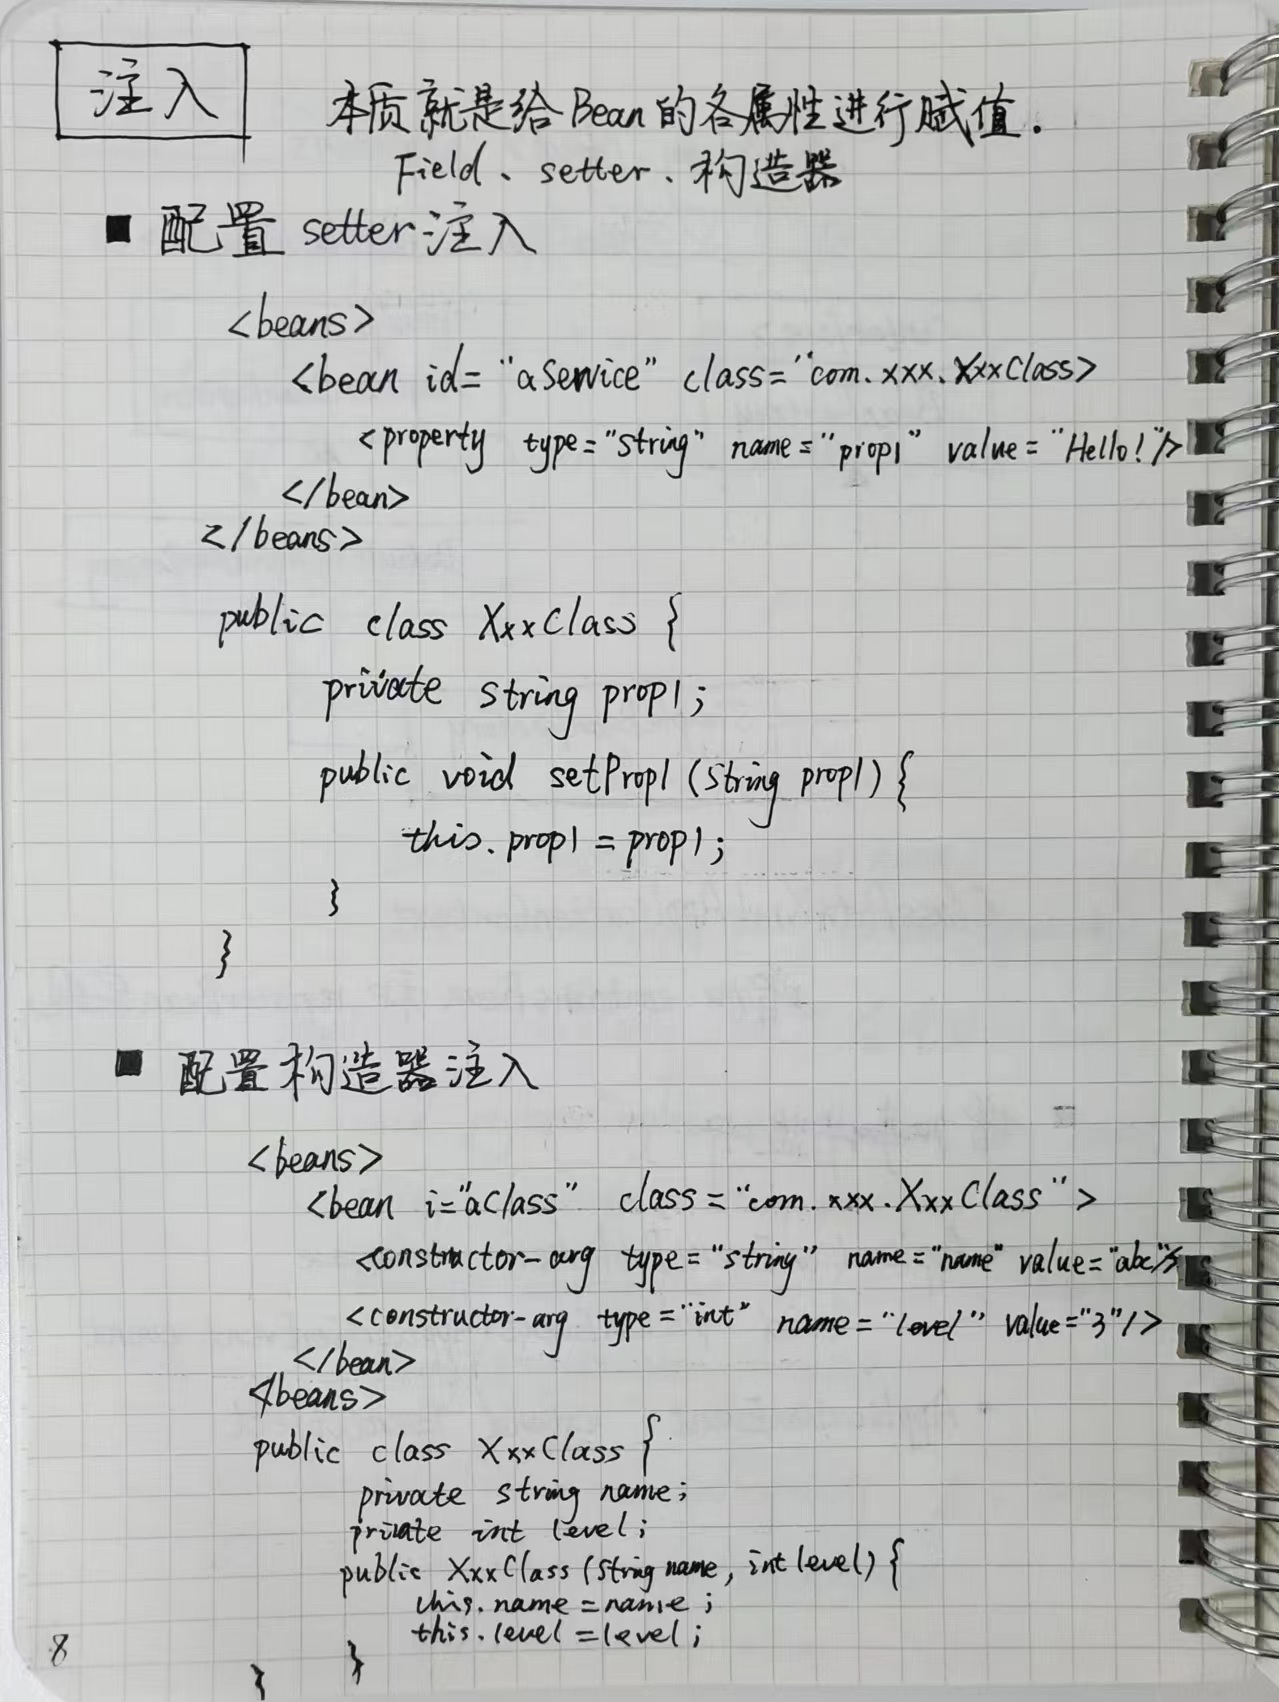 注入
本质就是给Bean的各属性进行赋值.
Field、setter、构造器
■ 配置setter注入
<beans>
<bean id="aService" class="com.xxx.XxxClass>
<property type="string" name="prop1" value="Hello!"/>
</bean>
</beans>
public class XxxClass {
private string prop1;
public void setProp1(string prop1){
this.prop1=prop1;
}
}
■ 配置构造器注入
<beans>
<bean i="aClass" class="com.xxx.XxxClass">
<constructor-arg type="string" name="name" value="abc"/>
<constructor-arg type="int" name="level" value="3"/>
</bean>
</beans>
public class XxxClass {
private string name;
private int level;
public XxxClass(String name, int level){
this.name=name;
this.level=level;
}
}
8